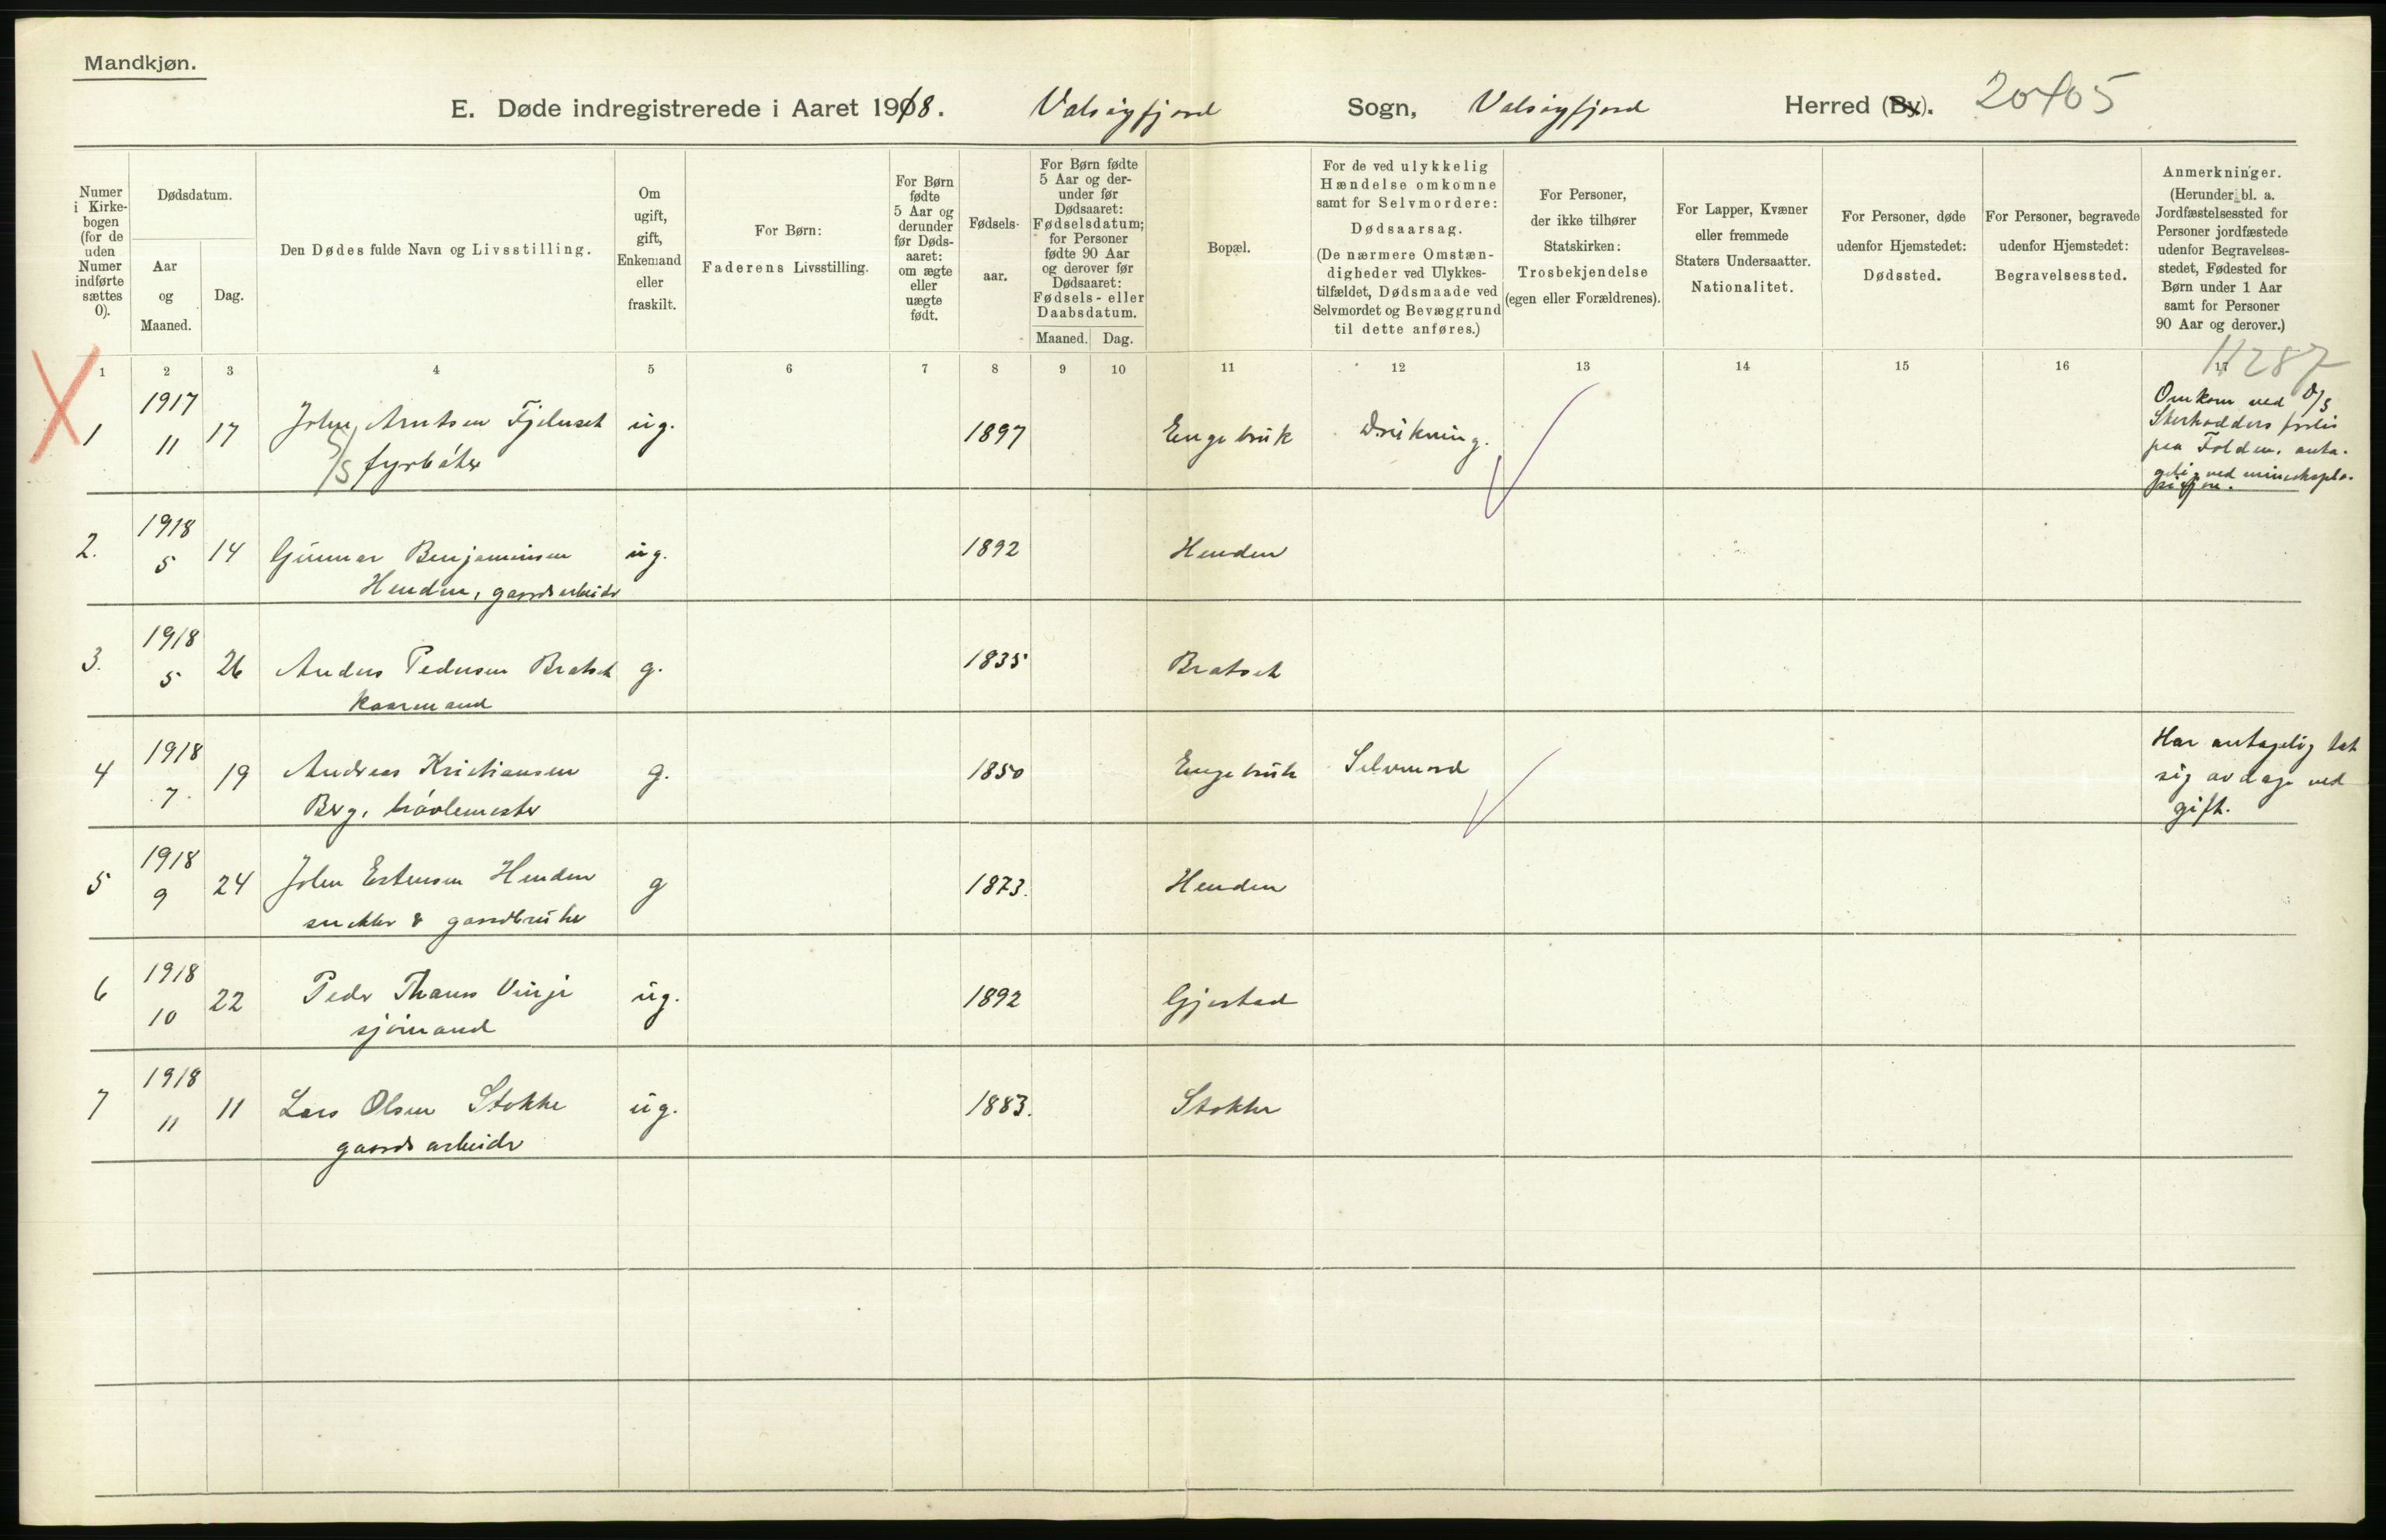 Mandkjøn.
E. Døde indregistrerede i Aaret 1918. Valsøyfjord Sogn, Valsøyfjord Herred (By). 20/05
Numer i Kirke-bogen (for de uden Numer indførte sættes 0).
Dødsdatum.
Aar og Maaned.
Dag.
Den Dødes fulde Navn og Livsstilling.
Om ugift, gift, Enkemand eller fraskilt.
For Børn:
Faderens Livsstilling.
For Børn fødte 5 Aar og derunder før Døds-aaret: om ægte eller uægte født.
Fødsels-aar.
For Børn fødte 5 Aar og der-under før Dødsaaret: Fødselsdatum; for Personer fødte 90 Aar og derover før Dødsaaret: Fødsels- eller Daabsdatum.
Maaned. Dag.
Bopæl.
For de ved ulykkelig Hændelse omkomne samt for Selvmordere:
Dødsaarsag.
(De nærmere Omstæn-digheder ved Ulykkes-tilfældet, Dødsmaade ved Selvmordet og Bevæggrund til dette anføres.)
For Personer, der ikke tilhører Statskirken:
Trosbekjendelse
(egen eller Forældrenes).
For Lapper, Kvæner eller fremmede Staters Undersaatter.
Nationalitet.
For Personer, døde udenfor Hjemstedet:
Dødssted.
For Personer, begravede udenfor Hjemstedet:
Begravelsessted.
Anmerkninger.
(Herunder bl. a. Jordfæstelsessted for Personer jordfæstede udenfor Begravelses-stedet, Fødested for Børn under 1 Aar samt for Personer 90 Aar og derover.)
1 2 3 4 5 6 7 8 9 10 11 12 13 14 15 16 17
11287
1 1917 11 17 John Arntsen Fjelnset ug. 1897 Engebruk Drukning. Omkom ved D/S
S/S fyrbøter
forlis
paa Folden, anta-
gelig ved mineeksplo-
sion.
2. 1918 5 14 Gunnar Benjaminsen ug. 1892 Henden
Henden, gaardsarbeider
3. 1918 5 26 Anders Pedersen Bratset g. 1835 Bratset
kaarmand
4 1918 7 19 Andreas Kristiansen g. 1850 Engebruk Selvmord Har antagelig tat
Berg, høvlemester
sig av dage ved
gift.
5 1918 9 24 John Estensen Henden g 1873. Henden
snekker & gaardbruker
6 1918 10 22 Peder Vinje ug. 1892 Gjestad
sjømand
7 1918 11 11 Lars Olsen Stokke ug. 1883. Stokke
gaardsarbeider